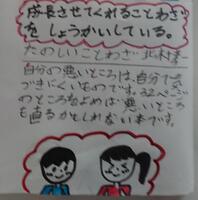 成長させてくれることわざ
をしょうかいしている。
たのしいことわざ 北村孝一
自分の悪いところは、自分で気
づきにくいものです。32ページ
のところをよめば悪いところ
も直るかもしれない本です。